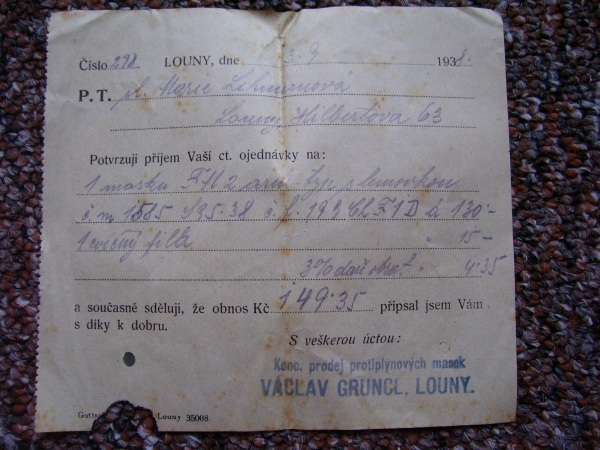 Číslo 298 LOUNY, dne 3 9 1938.
P. T. sl. Marie Lehmanová
Louny Hilbertova 63
Potvrzuji příjem Vaší ct. ojednávky na:
1 masku FM 2 s lemovkou
č. m. 1585 č. f. F1D á 130·-
1 cvičný filtr " 15-
3% daň obrat. " 4·35
a současně sděluji, že obnos Kč 149·35 připsal jsem Vám
s díky k dobru.
S veškerou úctou:
Konc. prodej protiplynových masek
VÁCLAV GRUNCL, LOUNY.
Louny 35008